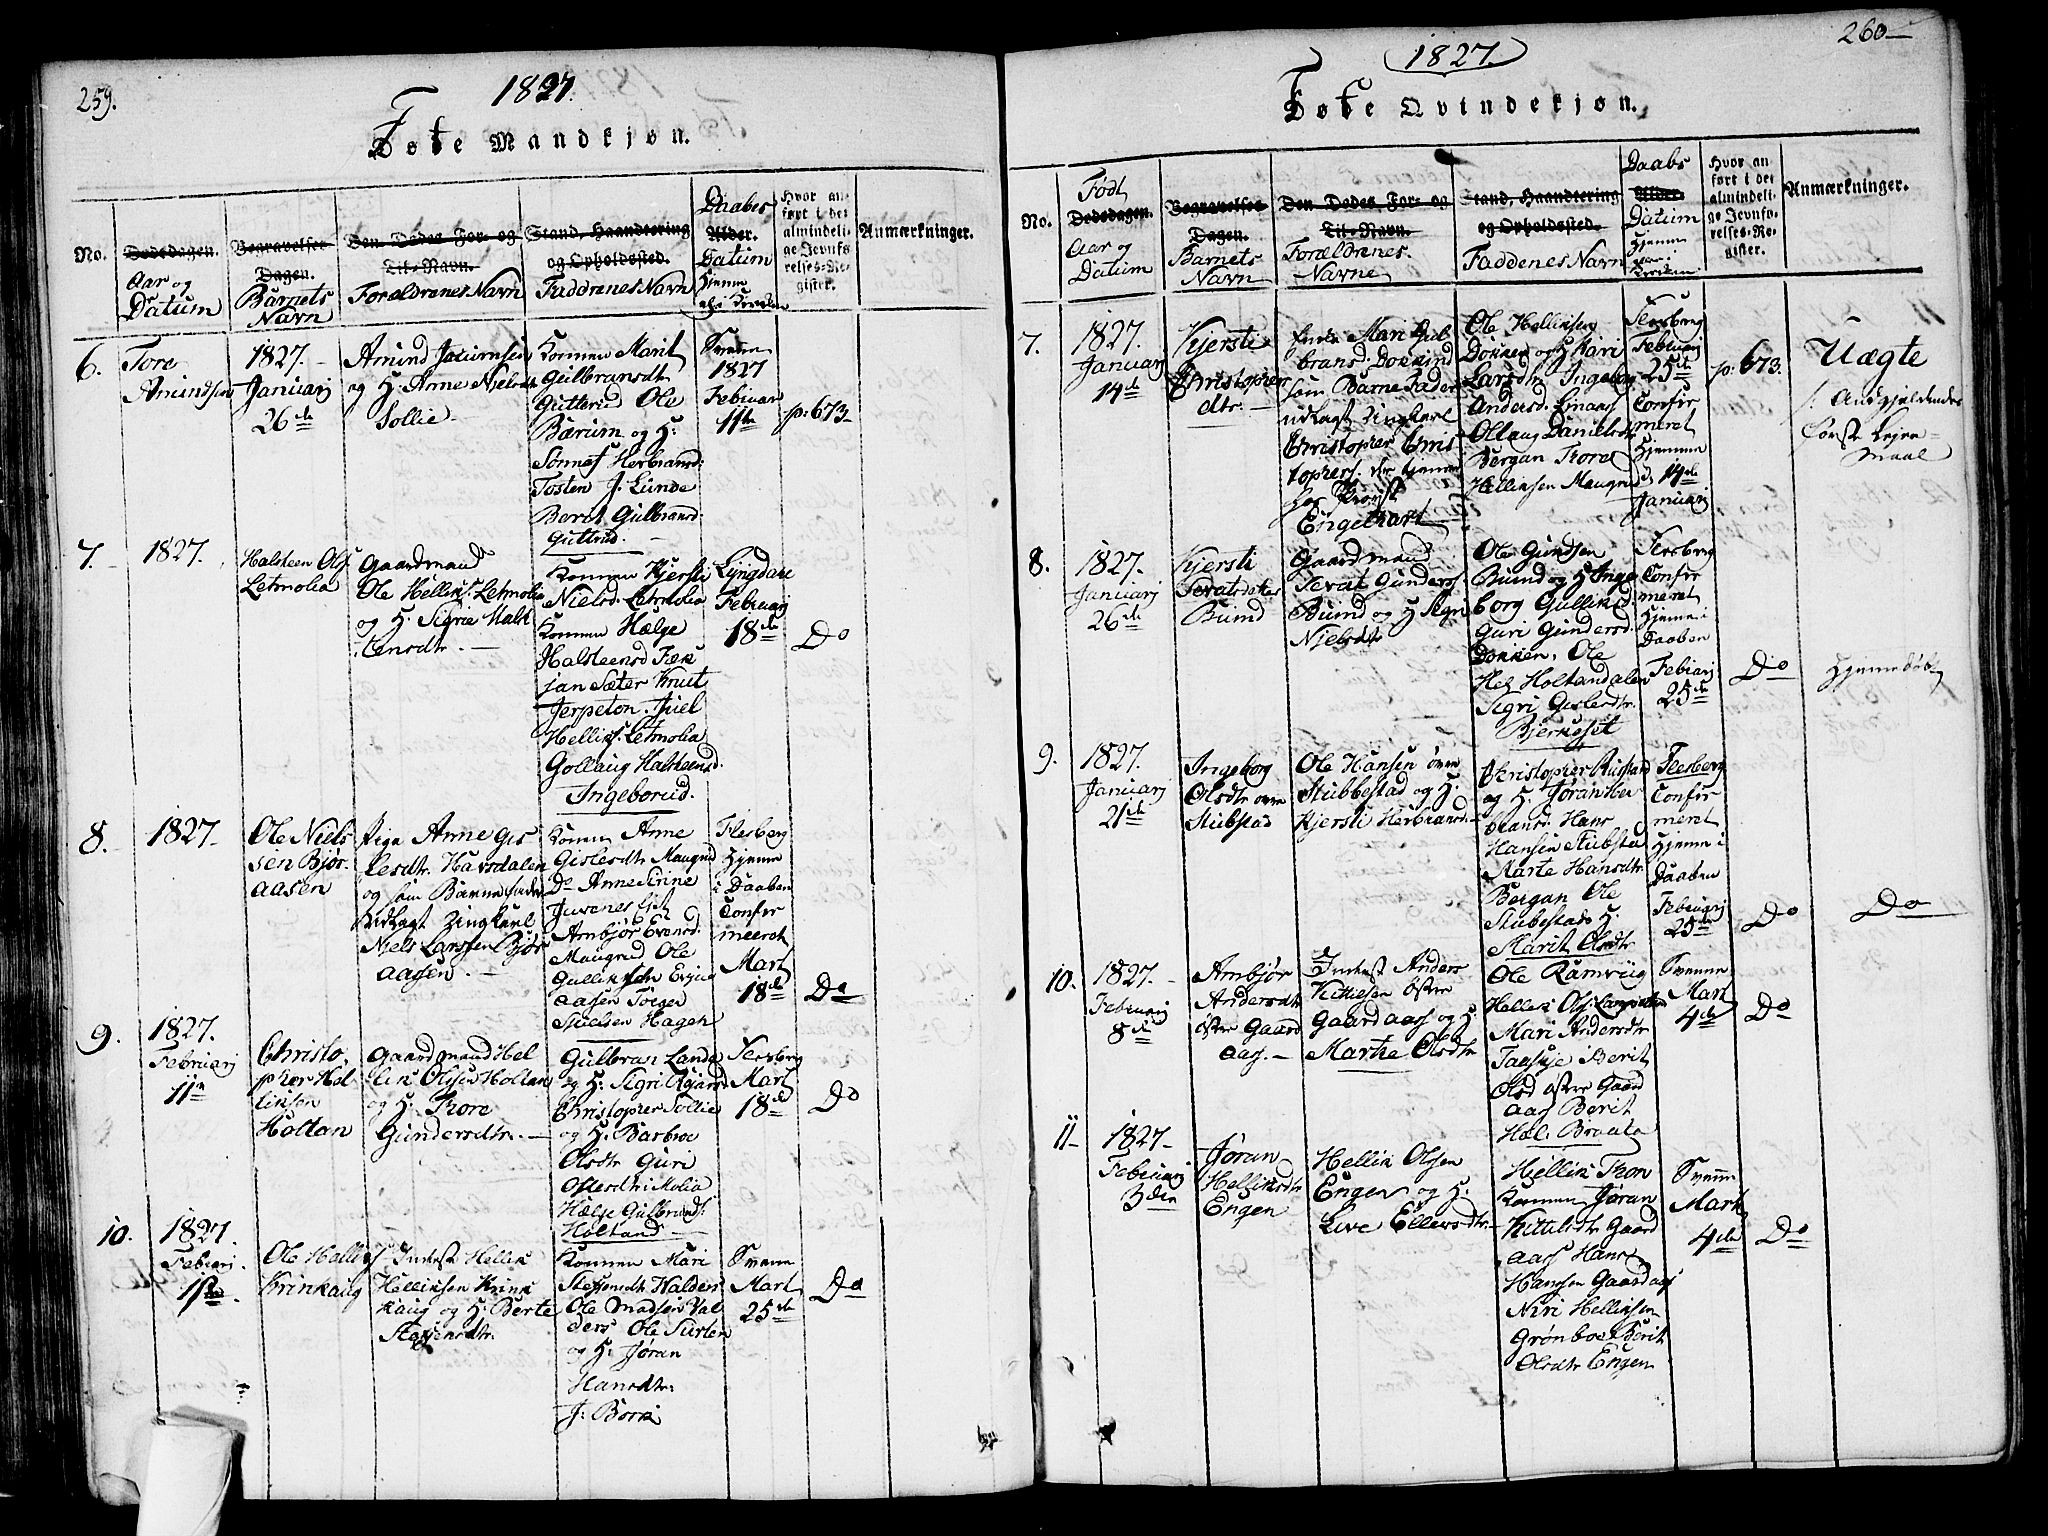 259.
1827.
Føte Mandkjøn.
No.
Dødsdagen.
Aar og
Datum
Begravelses
Dagen.
Barnets
Navn
Den Dødes For- og
Til-Navn.
ForældrenesNavn
Stand, Haandtering
og Opholdssted.
FaddrenesNavn
Daabes
Alder.
Datum
Hjemme
Hvor an-
ført i det
almindeli-
ge Jevnfø
relses-Re-
gister.
Anmærkninger.
6.
Tore
Amundsen
1827.
Januarj
26de
Amund
og H. Anne Nielsdt
Sollie
Konnen Marit
Gulbransdt
Gutterud Ole
Bærum og H:
Herbransd:
Tosten J. Lunde
Berit Gulbransd:
Gutterud.
Svenne
1827
Februar
11te
p:673
7.
1827.
Halsteen Ols.
Letmolia
Gaardmand
Ole Helliks. Letmolia
og H. Sigrie Halst
ensdtr.
Konnen Kjersti
Nielsd. Letmolia
Konnen Hælge
Halsteensd
jan Sæter Knut
Jerpeton. Juel
Helliks. Letmolia
Gollaug Halsteensd.
Ingeborud.
Lyngdale
Februarj
18de
Do
8.
1827.
Ole Niels
sen Bjør
aasen
Piga Anne Gis
lesdtr. Havsdalen
og som Barnefader
udlagt Ungkarl
Niels Larssen Bjør
aasen.
Konen Anne
Gislesdtr Maugrud
Do Anne
Juvenes Eje
Ambjør Evensd.
Maugrud Ole
Gulliksen
aasen Torger
Nielsen Hagen
Flesberg
Hjemme
i Daaben
Confir
meeret
Mart
18de
Do
9.
1827.
Februarj
11te
Christo
pher Hel
liksen
Holtan
Gaardmand Hel
lik Olsen Holtan
og H. Tore
Gundersdtr.
Gulbran Lande
og H. Sigri
Christopher Sollie
og H. Barbroe
Olsdtr Guri
Molia
Hælge Gulbrands.
Holtand
Flesberg
Mart
18de
Do
10.
1827.
Februarj.
1ste
Ole Helliks
Krinkaug
Inderst Hellik
Helliksen Krink
kaug og H. Berte
Steffensdtr.
Konnen Mari
Steffensdt Walders
Ole Madsen Val
ders Ole
og H. Jøran
Hansdtr.
J: Børk
Svenne
Mart
25de
Do
260
1827.
Føte Qvindekjøn.
No.
Født
Dødsdagen.
Aar og
Datum
Begravelses
Dagen.
Barnets
Navn
Den Dødes For- og
Til-Navn.
Forældrenes
Navne
Stand, Haandtering
og Opholdssted.
FaddenesNavn
Daabs
Alder.
Datum
Hjemme
Hvor an
ført i det
almindeli
ge Jevnfø-
relses-Re-
gister.
Anmærkninger.
7.
1827.
Januarj
14de
Kjersti
Christophers
dtr.
Enke Mari Gul
brans. Dokkind
som Barne Fader
udlagt Ungkarl
Christopher Chris
tophers. der tjener
hos Provst
Engelhart
Ole Helliksen
Dokken og H Kari
Larsdtr Ingeborg
Andersd. Linaas
Ollaug Danielsdtr
Bergan Tores
Helliksen Maugrud
Flesberg
Februarj
25de
Confir
meret
Hjemme
d. 14de
Januarj
p: 673.
Uægte
/: Angjældendes
første Lejer-
maal
8.
1827.
Januarj
26de
Kjersti
Tovatsdatter
Bund
Gaardmand
Tovat Gunders.
Bund og H Sigri
Nielsdtr
Ole Gundsen
Bund og H Inge
borg Gulliksd.
Guri Gundersd.
Dokken, Ole
Hel Holtandalen
Sigri Gislesdtr.
Bjerkeset
Flesberg
Confir
meret
Hjemme i
Daaben
Februarj
25de
Do
Hjemmedøbt
9.
1827.
Januarj
21de
Ingeborg
Olsdtr øvre
Stubstad
Ole Hansen øvre
Stubbestad og H.
Kjersti Herbransd.
Christopher Rustand
og H. Jøran Her
bransd. Hans
Hansen Stubsta
Marte Hansdtr
Bergan Ole
Stubestad H.
Marit Olsdtr
Flesberg
Confir
meret
Hjemme i
Daaben
Februarj
25de
Do
Do
10.
1827.
Februarj
8de
Ambjør
Andersdtr
østre Gaard
aas.
Inderst Anders
Kittilsen østre
Gaardaas og H.
Marthe Olsdtr
Ole Ramvüg
Hellik Ols.
Mari Andersdtr
Taaskje Berit
Olsd østre Gaard
aas Berit
Hæl. Braata
Svenne
Mart
4de
Do
11
1827
Februarj
3den
Jøran
Helliksdtr
Engen
Hellik Olsen
Engen og H.
Live Ellersdtr
Hellik Tron
Konnen Jøran
Kittilsdtr Gaard
aas Hans
Hansen Gaardaas
Niri Helliksen
Grønboe Berit
Olsdtr Engen
Svenne
Mart
4de
Do